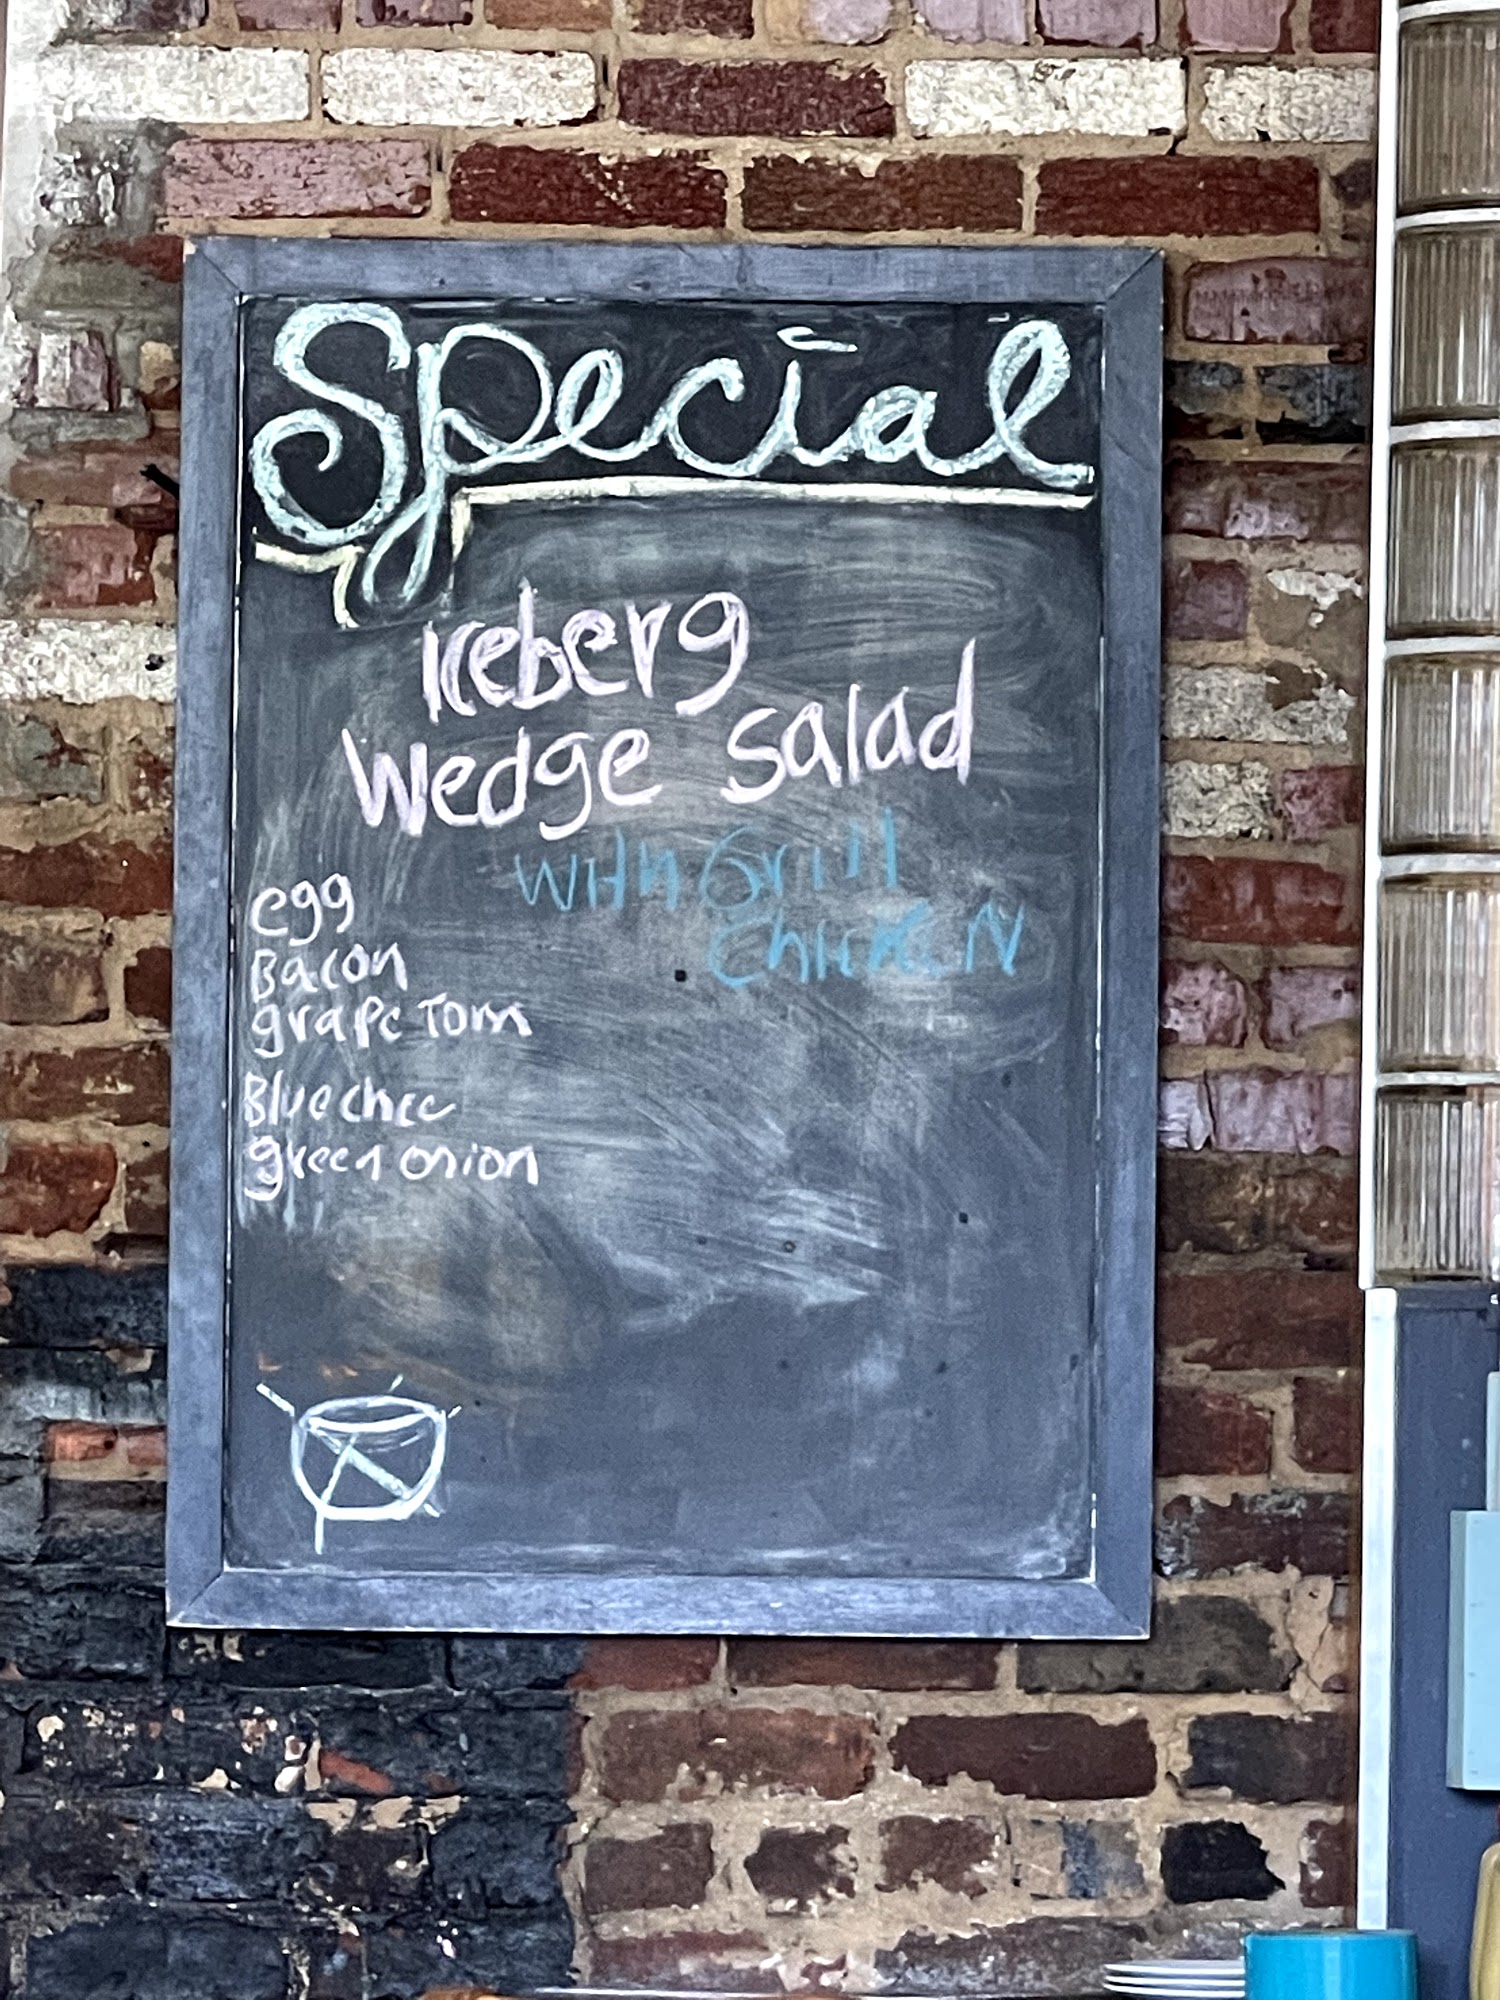 Special
Iceberg
Wedge Salad
with Grill
Chicken
egg
Bacon
grape Tom
Blue chee
green onion